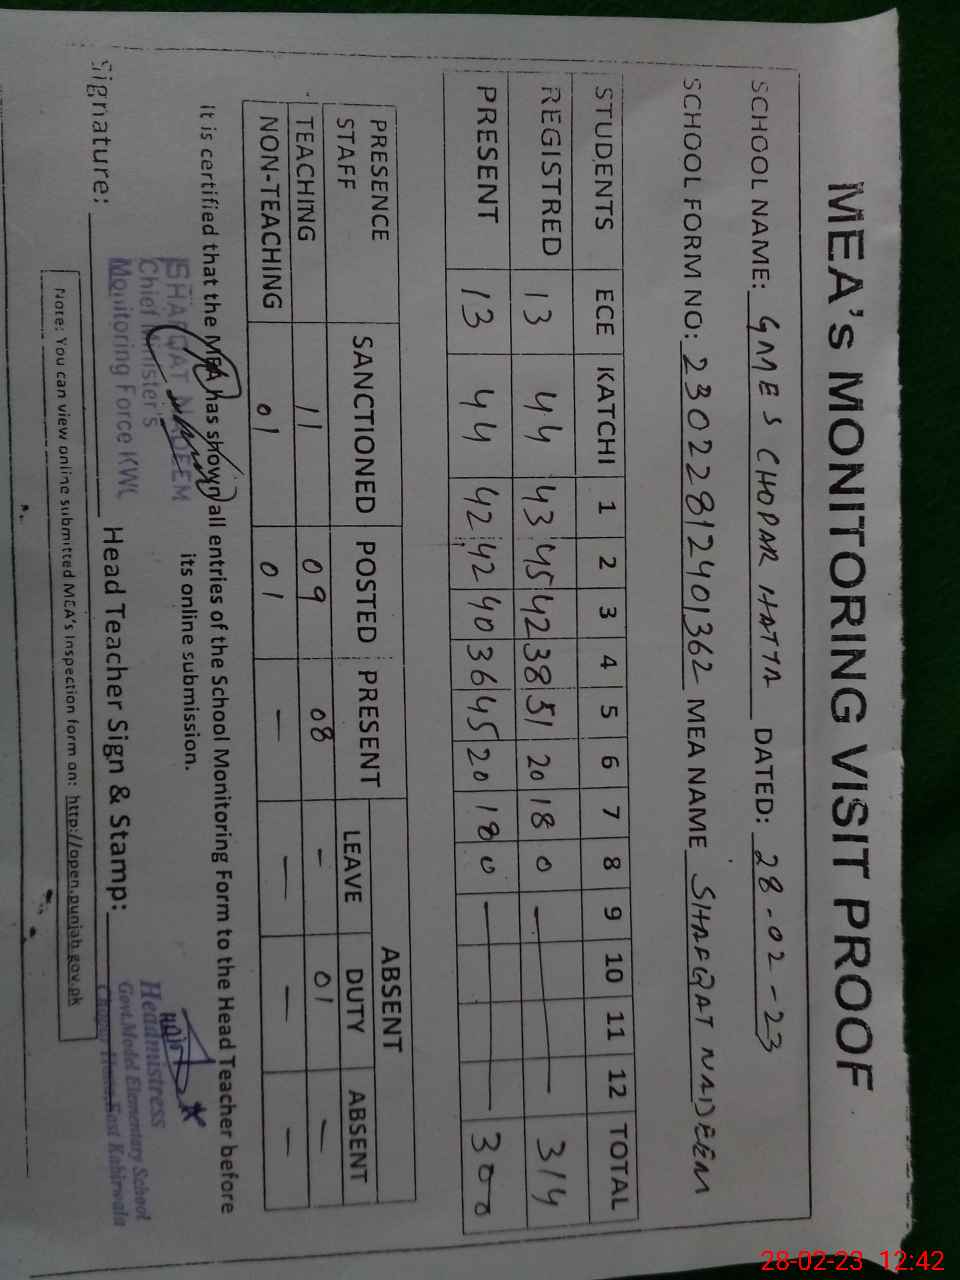 MEA's MONITORING VISIT PROOF
SCHOOL NAME: GMES CHOPAR HATTA DATED: 28-02-23
SCHOOL FORM NO: 23022812401362 MEA NAME SHAFQAT NADEEM
STUDENTS ECE KATCHI 1 2 3 4 5 6 7 8 9 10 11 12 TOTAL
REGISTRED 13 44 43 45 42 38 51 20 18 0 — — 314
PRESENT 13 44 42 42 40 36 45 20 18 0 — — 300
PRESENCE STAFF SANCTIONED POSTED PRESENT ABSENT
LEAVE DUTY ABSENT
TEACHING 11 09 08 - 01 —
NON-TEACHING 01 01 — — — —
It is certified that the MEA has shown all entries of the School Monitoring Form to the Head Teacher before
its online submission.
SHAFQAT NADEEM
Chief Minister's
Monitoring Force KWL
Headmistress
Govt.Model Elementary School
East Kabirwala
Signature: Head Teacher Sign & Stamp:
Note: You can view online submitted MEA's Inspection form on: http://open.punjab.gov.pk
28-02-23 12:42